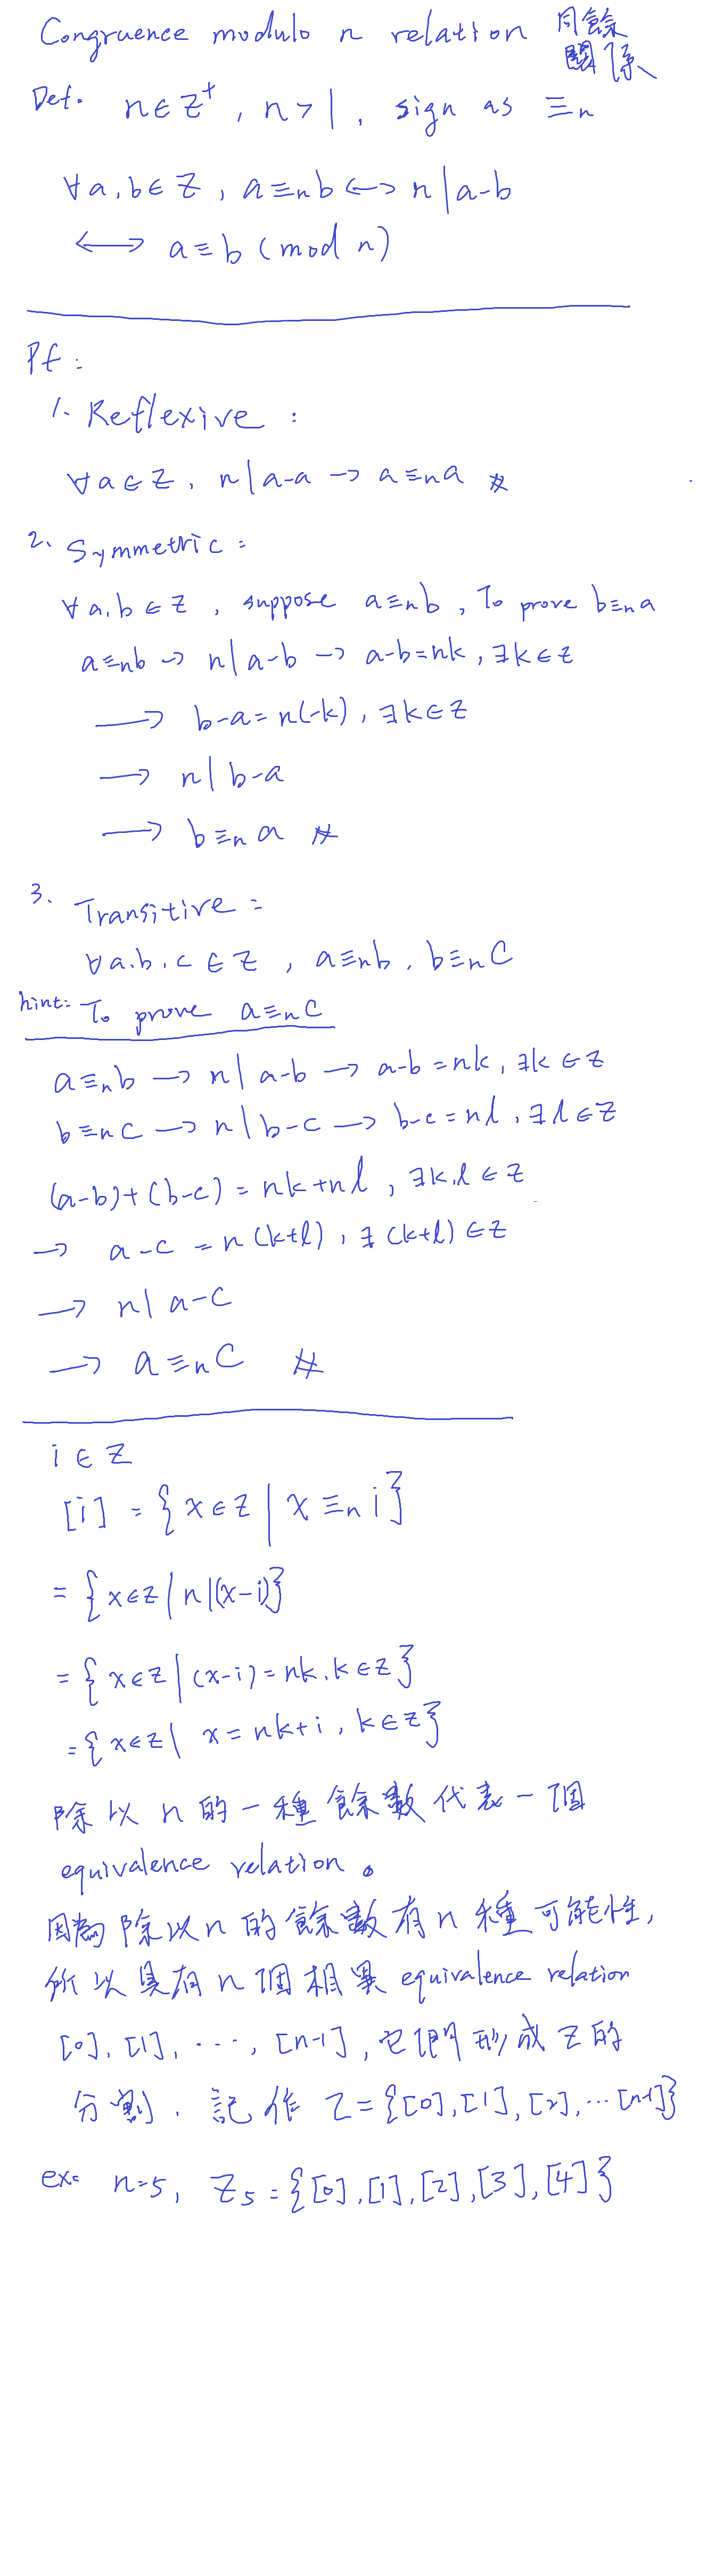 Congruence modulo n relation 同餘
關係
Def. n∈Z⁺, n>1, sign as ≡ₙ
∀a,b∈Z, a≡ₙb ⟷ n|a-b
⟷ a≡b (mod n)
Pf:
1. Reflexive:
∀a∈Z, n|a-a → a≡ₙa #
2. Symmetric:
∀a,b∈Z, suppose a≡ₙb, To prove b≡ₙa
a≡ₙb → n|a-b → a-b=nk, ∃k∈Z
→ b-a=n(-k), ∃k∈Z
→ n|b-a
→ b≡ₙa #
3. Transitive:
∀a,b,c∈Z, a≡ₙb, b≡ₙc
hint: To prove a≡ₙc
a≡ₙb → n|a-b → a-b=nk, ∃k∈Z
b≡ₙc → n|b-c → b-c=nl, ∃l∈Z
(a-b)+(b-c)=nk+nl, ∃k,l∈Z
→ a-c=n(k+l), ∃(k+l)∈Z
→ n|a-c
→ a≡ₙc #
i∈Z
[i]={x∈Z|x≡ₙi}
={x∈Z|n|(x-i)}
={x∈Z|(x-i)=nk,k∈Z}
={x∈Z|x=nk+i,k∈Z}
除以n的一種餘數代表一個
equivalence relation。
因為除以n的餘數有n種可能性,
所以具有n個相異equivalence relation
[0],[1],⋯,[n-1],它們形成Z的
分割,記作Z={[0],[1],[2],⋯[n-1]}
ex: n=5, Z₅={[0],[1],[2],[3],[4]}